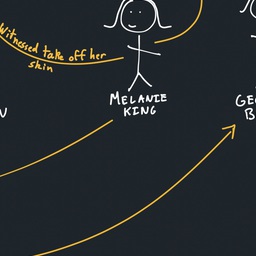 Witnessed take off her
skin
MELANIE
KING